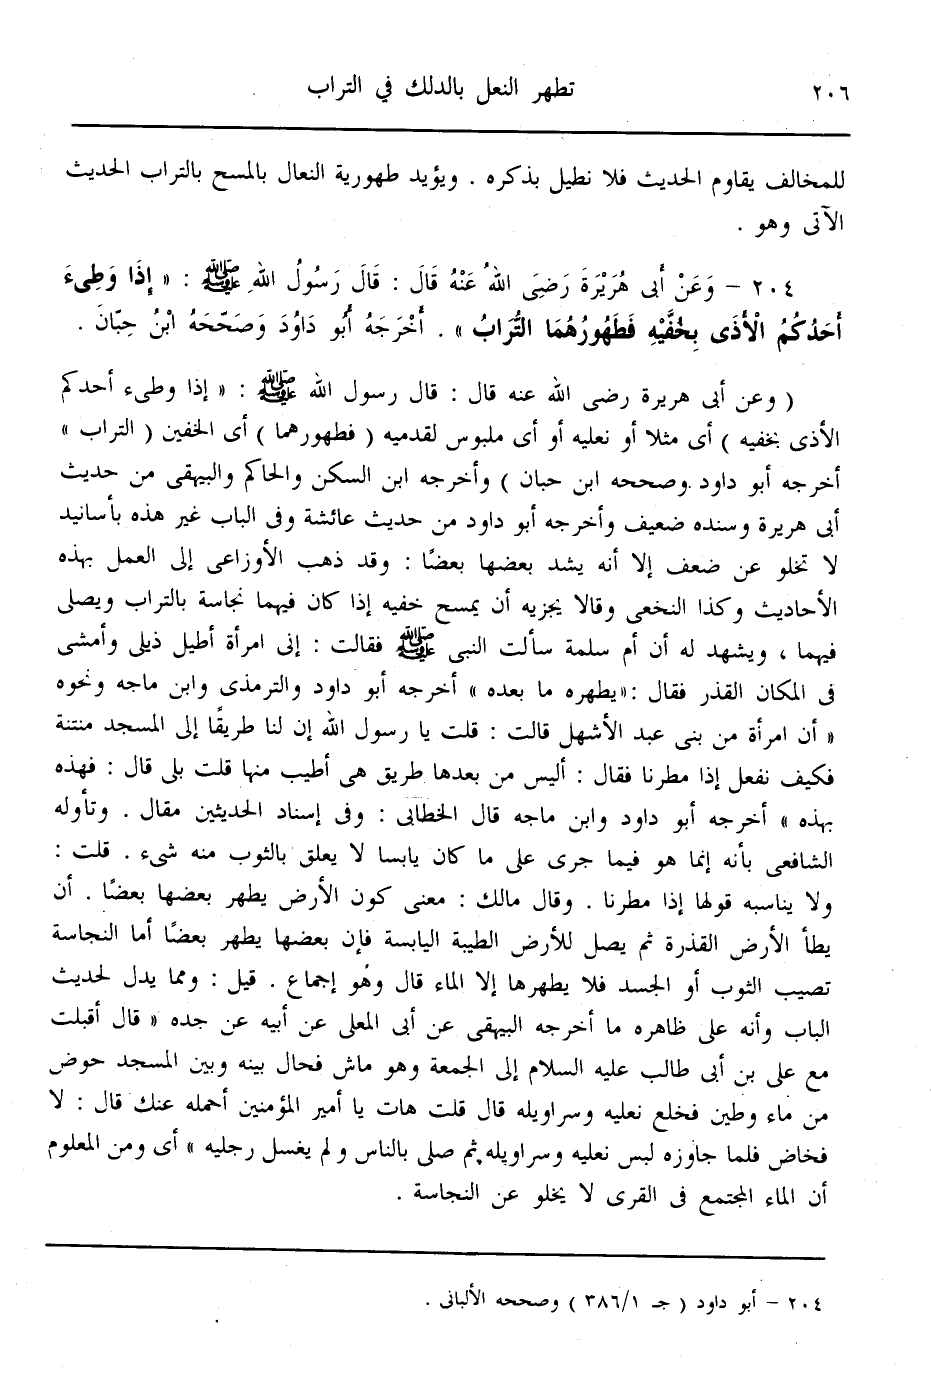 ٢٠٦ تطهر النعل بالدلك في التراب
للمخالف يقاوم الحديث فلا نطيل بذكره . ويؤيد طهورية النعال بالمسح بالتراب الحديث
الآتى وهو .
٢٠٤ – وَعَنْ أَبِى هُرَيْرَةَ رَضِىَ اللهُ عَنْهُ قَالَ : قَالَ رَسُولُ اللهِ ﷺ : « إِذَا وَطِىءَ
أَحَدُكُمُ الْأَذَى بِخُفَّيْهِ فَطَهُورُهُمَا التُّرَابُ » . أَخْرَجَهُ أَبُو دَاوُدَ وَصَحَّحَهُ ابْنُ حِبّانَ .
( وعن أبى هريرة رضى الله عنه قال : قال رسول الله ﷺ : « إذا وطىء أحدكم
الأذى بخفيه ) أى مثلا أو نعليه أو أى ملبوس لقدميه ( فطهورهما ) أى الخفين ( التراب »
أخرجه أبو داود وصححه ابن حبان ) وأخرجه ابن السكن والحاكم والبيهقى من حديث
أبى هريرة وسنده ضعيف وأخرجه أبو داود من حديث عائشة وفى الباب غير هذه بأسانيد
لا تخلو عن ضعف إلا أنه يشد بعضها بعضًا : وقد ذهب الأوزاعى إلى العمل بهذه
الأحاديث وكذا النخعى وقالا يجزيه أن يمسح خفيه إذا كان فيهما نجاسة بالتراب ويصلى
فيهما ، ويشهد له أن أم سلمة سألت النبى ﷺ فقالت : إنى امرأة أطيل ذيلى وأمشى
فى المكان القذر فقال :«يطهره ما بعده » أخرجه أبو داود والترمذى وابن ماجه ونحوه
« أن امرأة من بنى عبد الأشهل قالت : قلت يا رسول الله إن لنا طريقًا إلى المسجد منتنة
فكيف نفعل إذا مطرنا فقال : أليس من بعدها طريق هى أطيب منها قلت بلى قال : فهذه
بهذه » أخرجه أبو داود وابن ماجه قال الخطابى : وفى إسناد الحديثين مقال . وتأوله
الشافعى بأنه إنما هو فيما جرى على ما كان يابسا لا يعلق بالثوب منه شىء . قلت :
ولا يناسبه قولها إذا مطرنا . وقال مالك : معنى كون الأرض يطهر بعضها بعضًا . أن
يطأ الأرض القذرة ثم يصل للأرض الطيبة اليابسة فإن بعضها يطهر بعضًا أما النجاسة
تصيب الثوب أو الجسد فلا يطهرها إلا الماء قال وهُو إجماع . قيل : ومما يدل لحديث
الباب وأنه على ظاهره ما أخرجه البيهقى عن أبى المعلى عن أبيه عن جده « قال أقبلت
مع على بن أبى طالب عليه السلام إلى الجمعة وهو ماش فحال بينه وبين المسجد حوض
من ماء وطين فخلع نعليه وسراويله قال قلت هات يا أمير المؤمنين أحمله عنك قال : لا
فخاض فلما جاوزه لبس نعليه وسراويله ثم صلى بالناس ولم يغسل رجليه » أى ومن المعلوم
أن الماء المجتمع فى القرى لا يخلو عن النجاسة .
٢٠٤ – أبو داود ( جـ ٣٨٦/١ ) وصححه الألبانى .